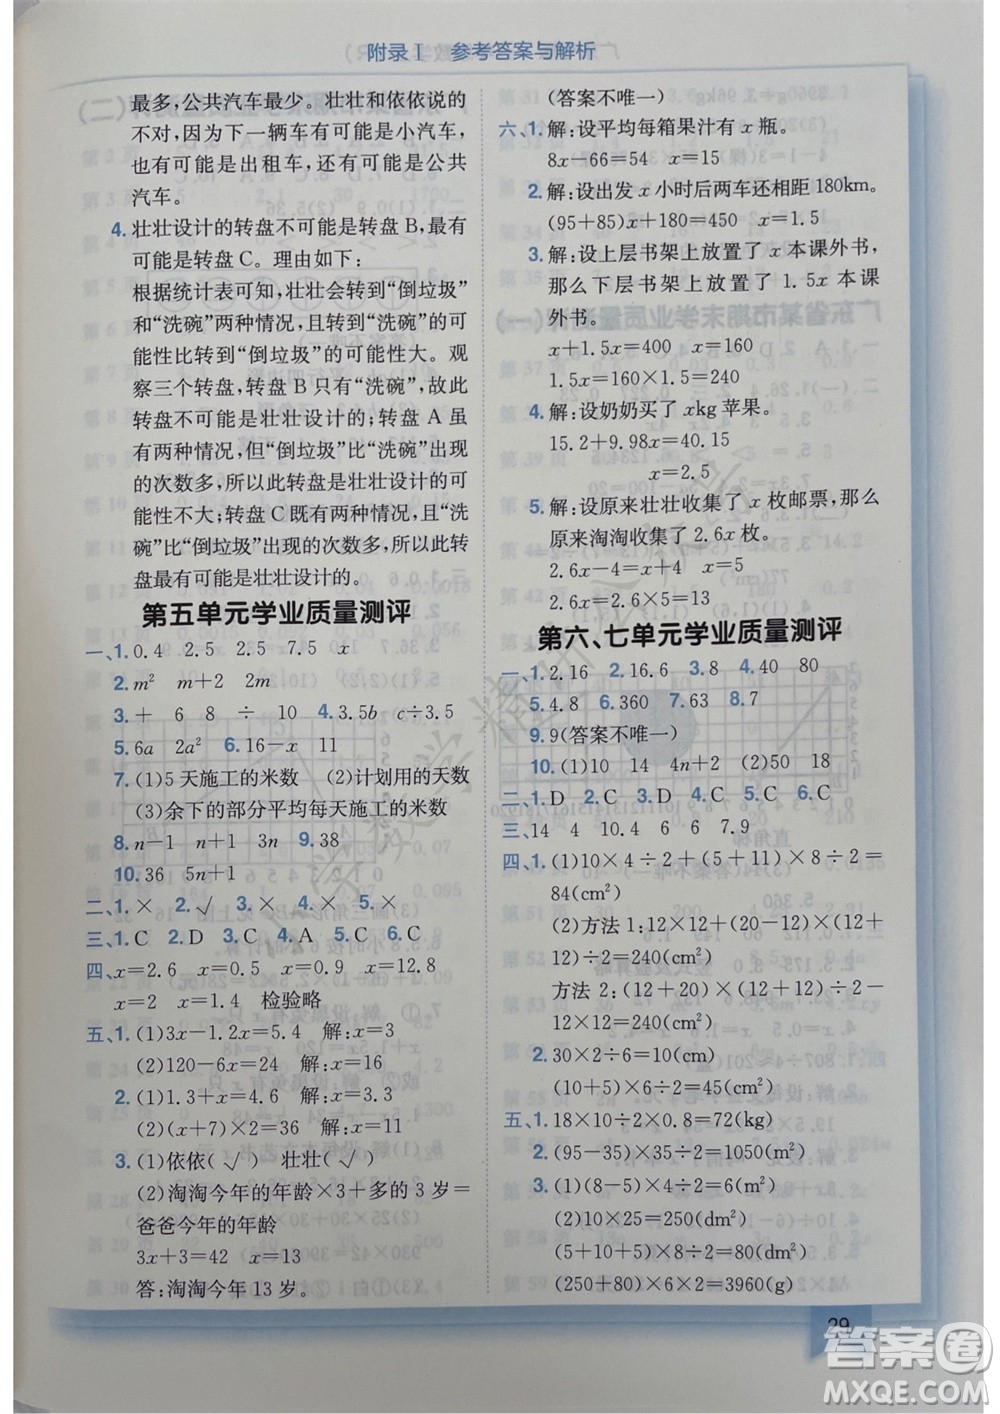 附录Ⅰ 参考答案与解析
最多,公共汽车最少。壮壮和依依说的
不对,因为下一辆车有可能是小汽车,
也有可能是出租车,还有可能是公共
汽车。
4. 壮壮设计的转盘不可能是转盘 B,最有
可能是转盘 C。理由如下:
根据统计表可知,壮壮转到“倒垃圾”
和“洗碗”两种情况,且转到“洗碗”的可
能性比转到“倒垃圾”的可能性大。观
察三个转盘,转盘 B 只有“洗碗”,故此
转盘不可能是壮壮设计的;转盘 A 虽
有两种情况,但“倒垃圾”比“洗碗”出现
的次数多,所以此转盘是壮壮设计的可
能性不大;转盘 C 既有两种情况,且“洗
碗”比“倒垃圾”出现的次数多,所以此转
盘最有可能是壮壮设计的。
第五单元学业质量测评
一、1. 0.4 2.5 2.5 7.5 x
2. m² m+2 2m
3. + 6 8 ÷ 10 4. 3.5b c÷3.5
5. 6a 2a² 6. 16-x 11
7. (1)5 天施工的米数 (2)计划用的天数
(3)余下的部分平均每天施工的米数
8. n-1 n+1 3n 9. 15
10. 36 5n+1
二、1. × 2. √ 3. × 4. × 5. ×
三、1. C 2. D 3. C 4. A 5. C 6. C
四、x=2.6 x=0.5 x=12.8
x=2 x=9 x=4 检验略
五、1. (1)3x-1.2x=5.4 解:x=3
(2)120-6x=24 解:x=16
2. (1)x+1=4.6 解:x=3.6
(2)(x+7)×2=36 解:x=11
3. (1)依依( √ ) 壮壮( √ )
(2)淘淘今年的年龄×3+多的 3 岁=
爸爸今年的年龄
3x+3=42 x=13
答:淘淘今年 13 岁。
(答案不唯一)
六、1. 解:设平均每箱果汁有 x 瓶。
8x-66=54 x=15
2. 解:设出发 x 小时后两车还相距 180km。
(95+85)x+180=450 x=1.5
3. 解:设上层书架上放置了 x 本课外书,
那么下层书架上放置了 1.5x 本课
外书。
x+1.5x=400 x=160
1.5x=1.5×160=240
4. 解:设奶奶买了 xkg 苹果。
15.2+9.98x=40.15
x=2.5
5. 解:设原来壮壮收集了 x 枚邮票,那么
原来淘淘收集了 2.6x 枚。
2.6x-4=x+4 x=5
2.6x=2.6×5=13
第六、七单元学业质量测评
一、1. 2.16 2. 16.6 3. 8 4. 40 80
5. 4.8 6. 360 7. 63 8. 7
9. 9(答案不唯一)
10. (1)10 14 4n+2 (2)50 18
二、1. D 2. C 3. C 4. D 5. C
三、14 4 10.4 6 6 7.9
四、1. (1)10×4÷2+(6+10)×8÷2=
84(cm²)
(2)方法 1:12×12+(20-12)×(12+
12)÷2=240(cm²)
方法 2:(12+20)×(12+12)÷2-
12×(12+12)÷2=240(cm²)
2. 30×2÷6=10(cm)
(5+10)×6÷2=45(cm²)
五、1. 18×10÷2×0.8=72(kg)
2. (95-35)×35÷2=1050(m²)
3. (1)(8-5)×4÷2=6(dm²)
(2)10×25=250(dm²)
(5+10+5)×8÷2=80(dm²)
(250+80)×6×2=3960(g)
29
答案圈
MXQE.COM